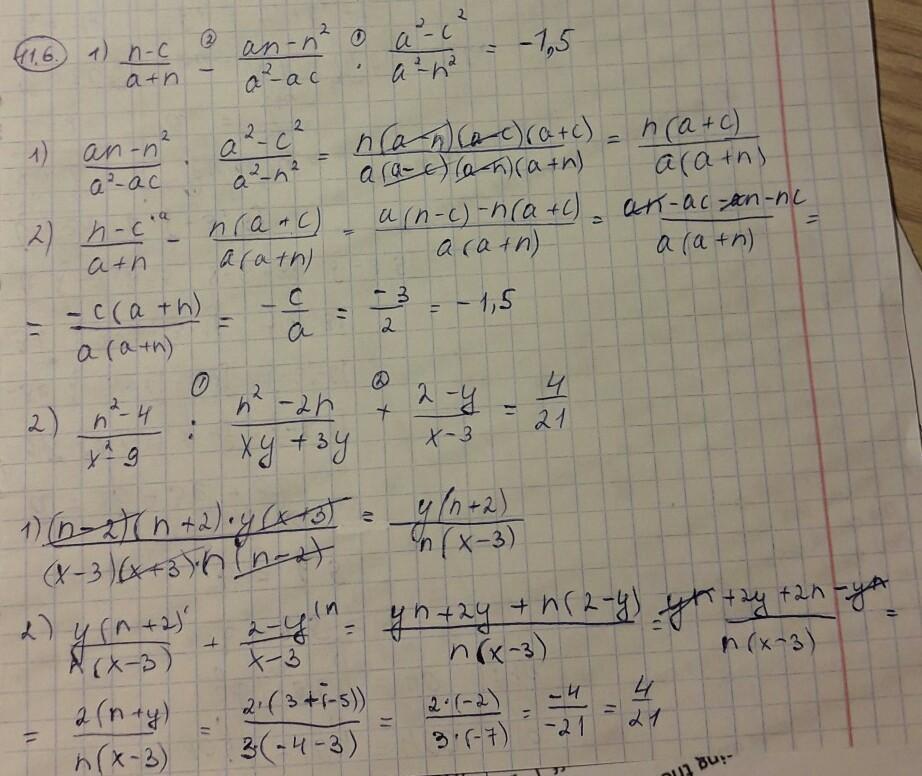 11.6. 1) (n-c)/(a+n) -② (an-n²)/(a²-ac) ·① (a²-c²)/(a²-n²) = -1,5
1) (an-n²)/(a²-ac) · (a²-c²)/(a²-n²) = (n(a-n)(a-c)(a+c))/(a(a-c)(a-n)(a+n)) = (n(a+c))/(a(a+n))
2) (n-c)/(a+n) ^(a) - (n(a+c))/(a(a+n)) = (a(n-c)-n(a+c))/(a(a+n)) = (an-ac-an-nc)/(a(a+n)) =
= (-c(a+n))/(a(a+n)) = -c/a = -3/2 = -1,5
2) (n²-4)/(x²-9) :① (n²-2n)/(xy+3y) +② (2-y)/(x-3) = 4/21
1) ((n-2)(n+2)·y(x+3))/((x-3)(x+3)·n(n-2)) = (y(n+2))/(n(x-3))
2) (y(n+2))/(n(x-3)) + (2-y)/(x-3) ^(n) = (yn+2y+n(2-y))/(n(x-3)) = (yn+2y+2n-yn)/(n(x-3)) =
= (2(n+y))/(n(x-3)) = (2·(3+(-5)))/(3(-4-3)) = (2·(-2))/(3·(-7)) = (-4)/(-21) = 4/21
ing the